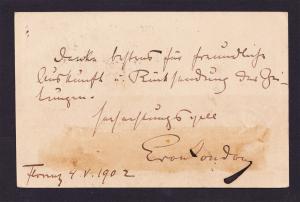 Danke bestens für freundliche
Auskunft u. Rücksendung der Zei-
tungen.
hochachtungsvoll
Florenz 4. V. 1902